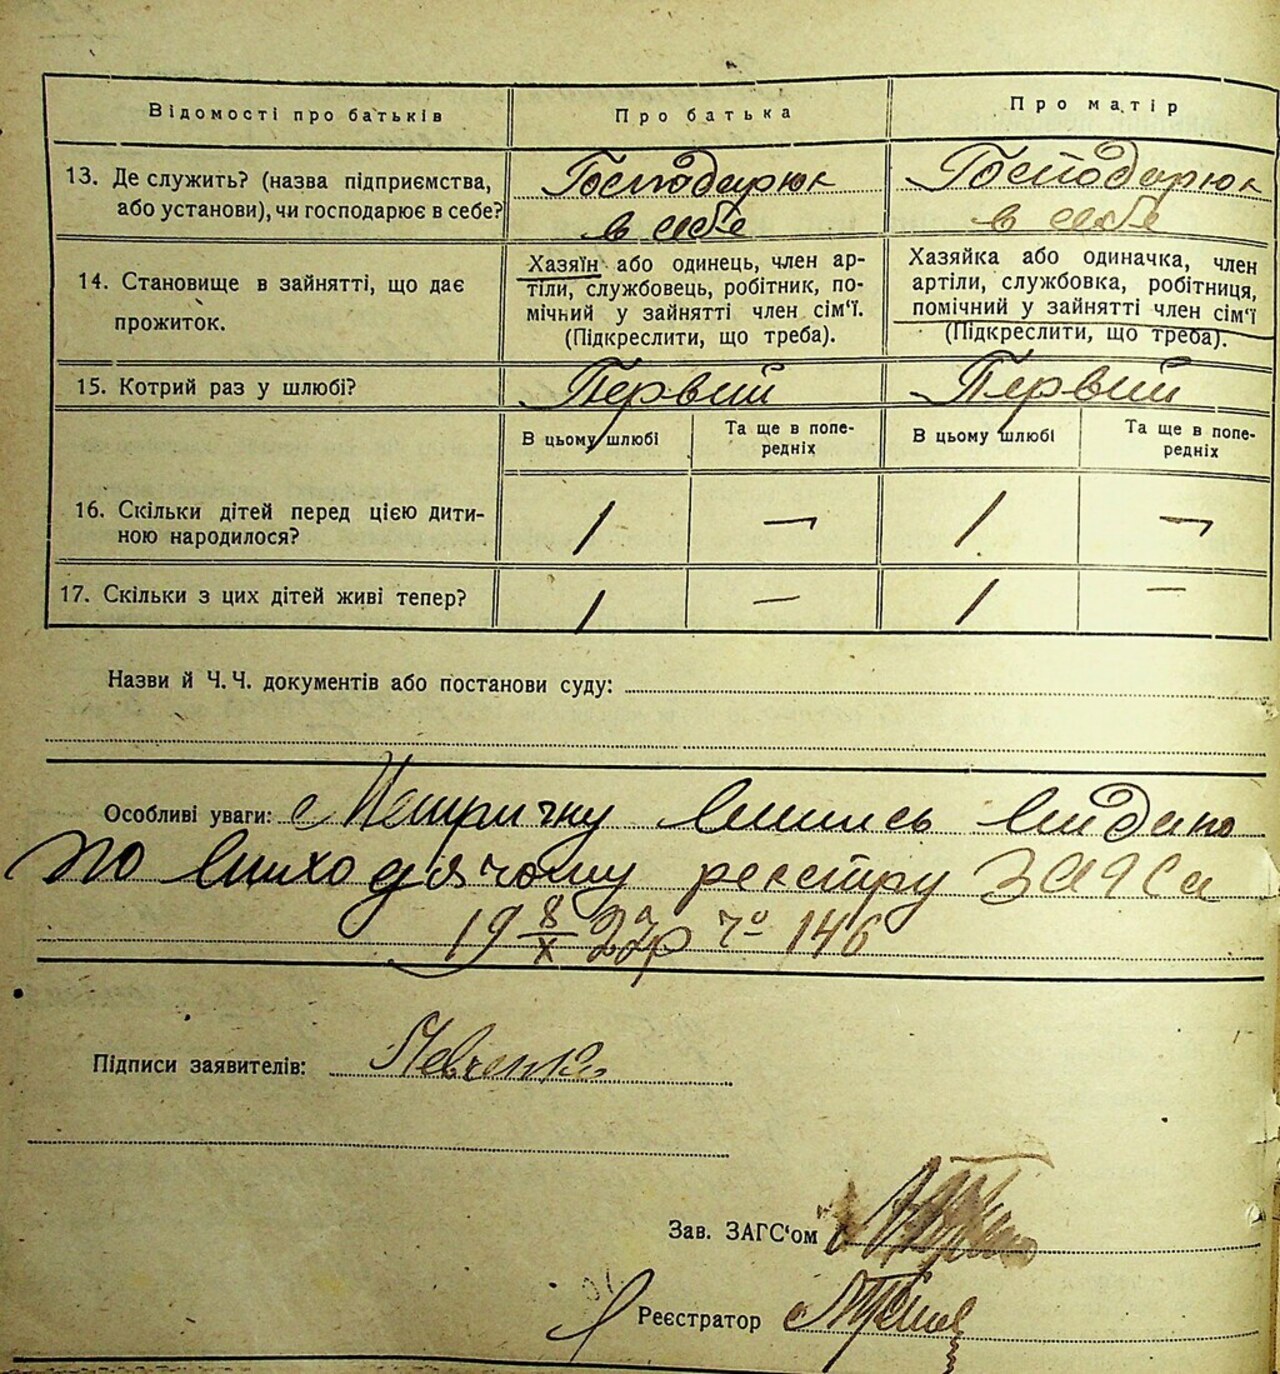 Відомості про батьків
Про батька
Про матір
13. Де служить? (назва підприємства,
або установи), чи господарює в себе?
Господарюк
в себе
Господарюк
в себе
14. Становище в зайнятті, що дає
прожиток.
Хазяїн або одинець, член ар-
тіли, службовець, робітник, по-
мічний у зайнятті член сім'ї.
(Підкреслити, що треба).
Хазяйка або одиначка, член
артіли, службовка, робітниця,
помічний у зайнятті член сім'ї
(Підкреслити, що треба).
15. Котрий раз у шлюбі?
Первий
Первий
В цьому шлюбі
Та ще в попе-
редніх
В цьому шлюбі
Та ще в попе-
редніх
16. Скільки дітей перед цією дити-
ною народилося?
1
—
1
—
17. Скільки з цих дітей живі тепер?
1
—
1
—
Назви й Ч. Ч. документів або постанови суду:
Особливі уваги: Метричну випись видано
по виходячому реєстру ЗАГСа
19 8/X р чо 146
Підписи заявителів:
Зав. ЗАГС'ом
Реєстратор